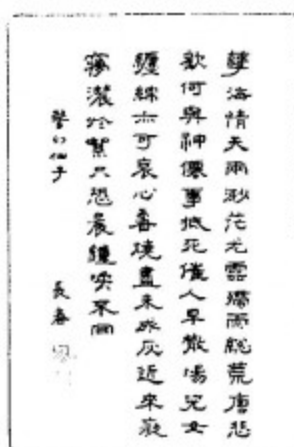 孽海情天兩渺茫尤雲殢雨總荒唐悲
歡何與神僊事抵死催人早散場兒女
纏綿亦可哀心香燒盡未成灰近來癡
夢濃於絮只恐晨鐘喚不回
警幻仙子
長春